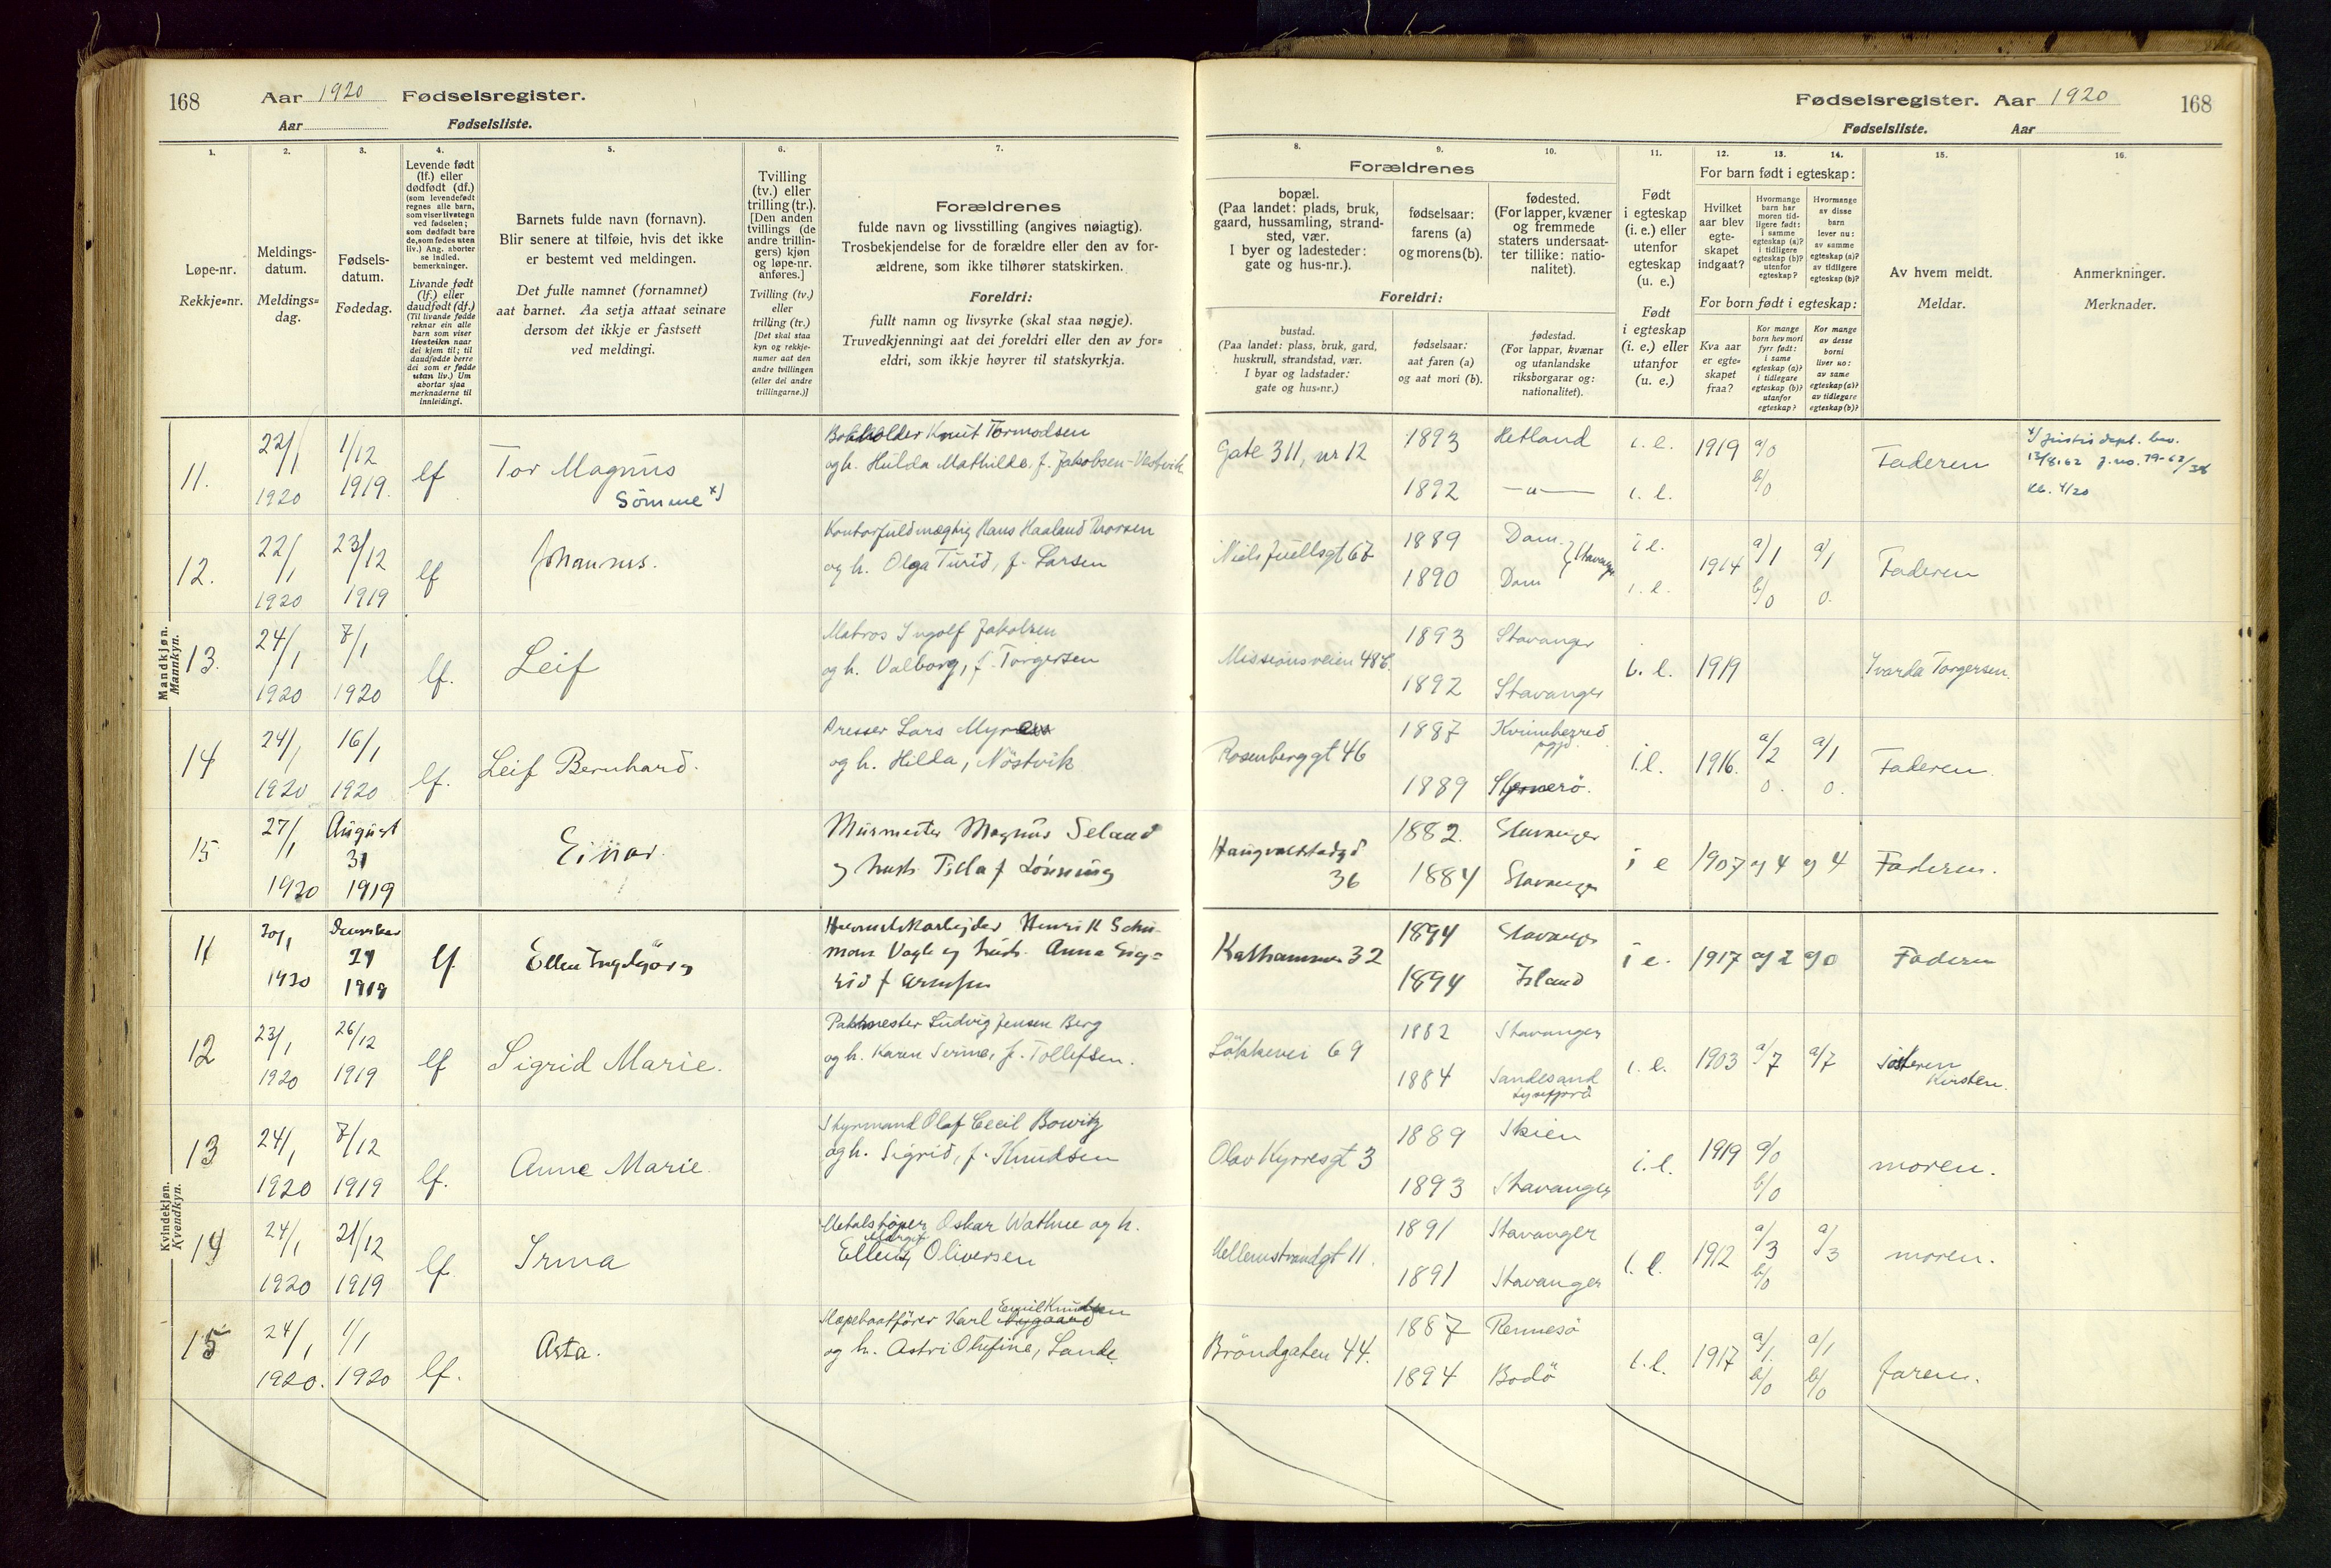 168
Aar 1920 Fødselsregister.
Aar Fødselsliste.
1. 2. 3. 4. 5. 6. 7.
Løpe-nr.
Rekkje-nr.
Meldings-
datum.
Meldings-
dag.
Fødsels-
datum.
Fødedag.
Levende født
(lf.) eller
dødfødt (df.)
(som levendefødt
regnes alle barn,
som viser livstegn
ved fødselen;
som dødfødt bare
de, som fødes uten
liv.) Ang. aborter
se indled.
bemerkninger.
Livande født
(lf.) eller
daudfødt (df.)
(Til livande fødde
reknar ein alle
barn som viser
livsteikn naar
dei kjem til; til
daudfødde berre
dei som er fødde
utan liv.) Um
abortar sjaa
merknaderne til
innleidingi.
Barnets fulde navn (fornavn).
Blir senere at tilføie, hvis det ikke
er bestemt ved meldingen.
Det fulle namnet (fornamnet)
aat barnet. Aa setja attaat seinare
dersom det ikkje er fastsett
ved meldingi.
Tvilling
(tv.) eller
trilling (tr.).
[Den anden
tvillings (de
andre trillin-
gers) kjøn
og løpe-nr.
anføres.]
Tvilling (tv.)
eller
trilling (tr.)
[Det skal staa
kyn og rekkje-
numer aat den
andre tvillingen
(eller dei andre
trillingarne.)]
Forældrenes
fulde navn og livsstilling (angives nøiagtig).
Trosbekjendelse for de forældre eller den av for-
ældrene, som ikke tilhører statskirken.
Foreldri:
fullt namn og livsyrke (skal staa nøgje).
Truvedkjenningi aat dei foreldri eller den av for-
eldri, som ikkje høyrer til statskyrkja.
Mandkjøn.
Mannkyn.
11. 22/1 1920 1/12 1919. lf Tor Magnus
Sömme x)
Bokholder Knut Tormodsen
og h. Hulda Mathilde, f. Jakobsen-Vestvik
12. 22/1 1920 23/12 1919 lf Johannes.
Kontorfuldmægtig Hans Haaland Thorsen
og h. Olga Turid, f. Larsen
13. 24/1 1920 7/1 1920 lf. Leif
Matros Ingolf Jakobsen
og h. Valborg, f. Torgersen
14 24/1 1920 16/1 1920 lf. Leif Bernhard.
Presser Lars
og h. Hilda, Nöstvik
15 27/1 1920 August 31 1919 Einar.
Murmester Magnus Seland
og hust. Tilla f Lönning
Kvindekjøn.
Kvendkyn.
11 20/1 1920 December 1919 lf. Ellen Ingebjörg
Henrik
Vagle og hust. Anna Sig-
rid f
12 23/1 1920 26/12 1919 lf Sigrid Marie.
Pakmester Ludvig Jensen Berg
og h. Karen Serine, f. Tollefsen.
13 24/1 1920 7/12 1919 lf. Anne Marie.
Styrmand Olaf Cecil Bowitz
og h. Sigrid, f. Knudsen
14 24/1 1920 21/12 1919 lf. Irma
Metalstöper Oskar Wathne og h.
Margit
Ellen, Oliversen
15 24/1 1920. 1/1 1920 lf. Asta.
Emil Knudsen
Slæpebaatförer Karl Nygaard
og h. Astri Olufine, Lande.
168
Fødselsregister. Aar 1920
Fødselsliste. Aar
8. 9. 10. 11. 12. 13. 14. 15. 16.
Forældrenes
bopæl.
(Paa landet: plads, bruk,
gaard, hussamling, strand-
sted, vær.
I byer og ladesteder:
gate og hus-nr.).
fødselsaar:
farens (a)
og morens (b).
fødested.
(For lapper, kvæner
og fremmede
staters undersaat-
ter tillike: natio-
nalitet).
Foreldri:
bustad.
(Paa landet: plass, bruk, gard,
huskrull, strandstad, vær.
I byar og ladstader:
gate og hus-nr.)
fødselsaar:
aat faren (a)
og aat mori (b).
fødestad.
(For lappar, kvænar
og utanlandske
riksborgarar og:
nationalitet).
Født
i egteskap
(i. e.) eller
utenfor
egteskap
(u. e.)
Født
i egteskap
(i. e.) eller
utanfor
(u. e.)
For barn født i egteskap:
Hvilket
aar blev
egte-
skapet
indgaat?
Hvormange
barn har
moren tid-
ligere født:
i samme
egteskap (a)?
i tidligere
egteskap (b)?
utenfor
egteskap?
Hvormange
av disse
barn
lever nu:
av samme
egteskap (a)?
av tidligere
egteskap (b)?
For born født i egteskap:
Kva aar
er egte-
skapet
fraa?
Kor mange
born hev mori
fyrr født:
i same
egteskap (a)?
i tidlegare
egteskap (b)?
utanfor
egteskap?
Kor mange
av desse
borni
liver no:
av same
egteskap (a)?
av tidlegare
egteskap (b)?
Av hvem meldt.
Meldar.
Anmerkninger.
Merknader.
Gate 311, nr 12 1893 Hetland i. e. 1919 a/0 Faderen
1892 —"— i. e. b/0
x) Justis dept. bev.
13/8.62 J.no.
kb. 4/20
Niels Juellsgt 67 1889 Dom. i e. 1914 a/1 a/1 Faderen
1890 Dom } Stavanger i. e. b/0 0.
Missionsveien 48b. 1893 Stavanger i. e. 1919 Torgersen.
1892 Stavanger
Rosenberggt 46 1887 Kvinnherred i.e. 1916. a/2 a/1 Faderen.
1889 0. 0.
Haugvaldstadgt 36 1882. Stavanger i e 1907 a) 4 a) 4 Faderen.
1884 Stavanger
Kathammer 32 1894 Stavanger i e. 1917 a) 2 a) 0 Faderen
1894 Island
Lökkevei 69 1882 Stavanger i. e. 1903 a/7 a/7 Søsteren
1884 Sandesand Kirsten.
Lysefjord
Olav Kyrresgt 3 1889 Skien i.e. 1919 a/0 moren.
1893 Stavanger b/0
Mellemstrandgt 11. 1891 Stavanger i. e. 1912 a/3 a/3 moren.
1891 Stavanger b/0
Bröndgaten 44. 1887 Rennesö i.e. 1917 a/1. a/1 faren.
1894 Bodö b/0 b/0